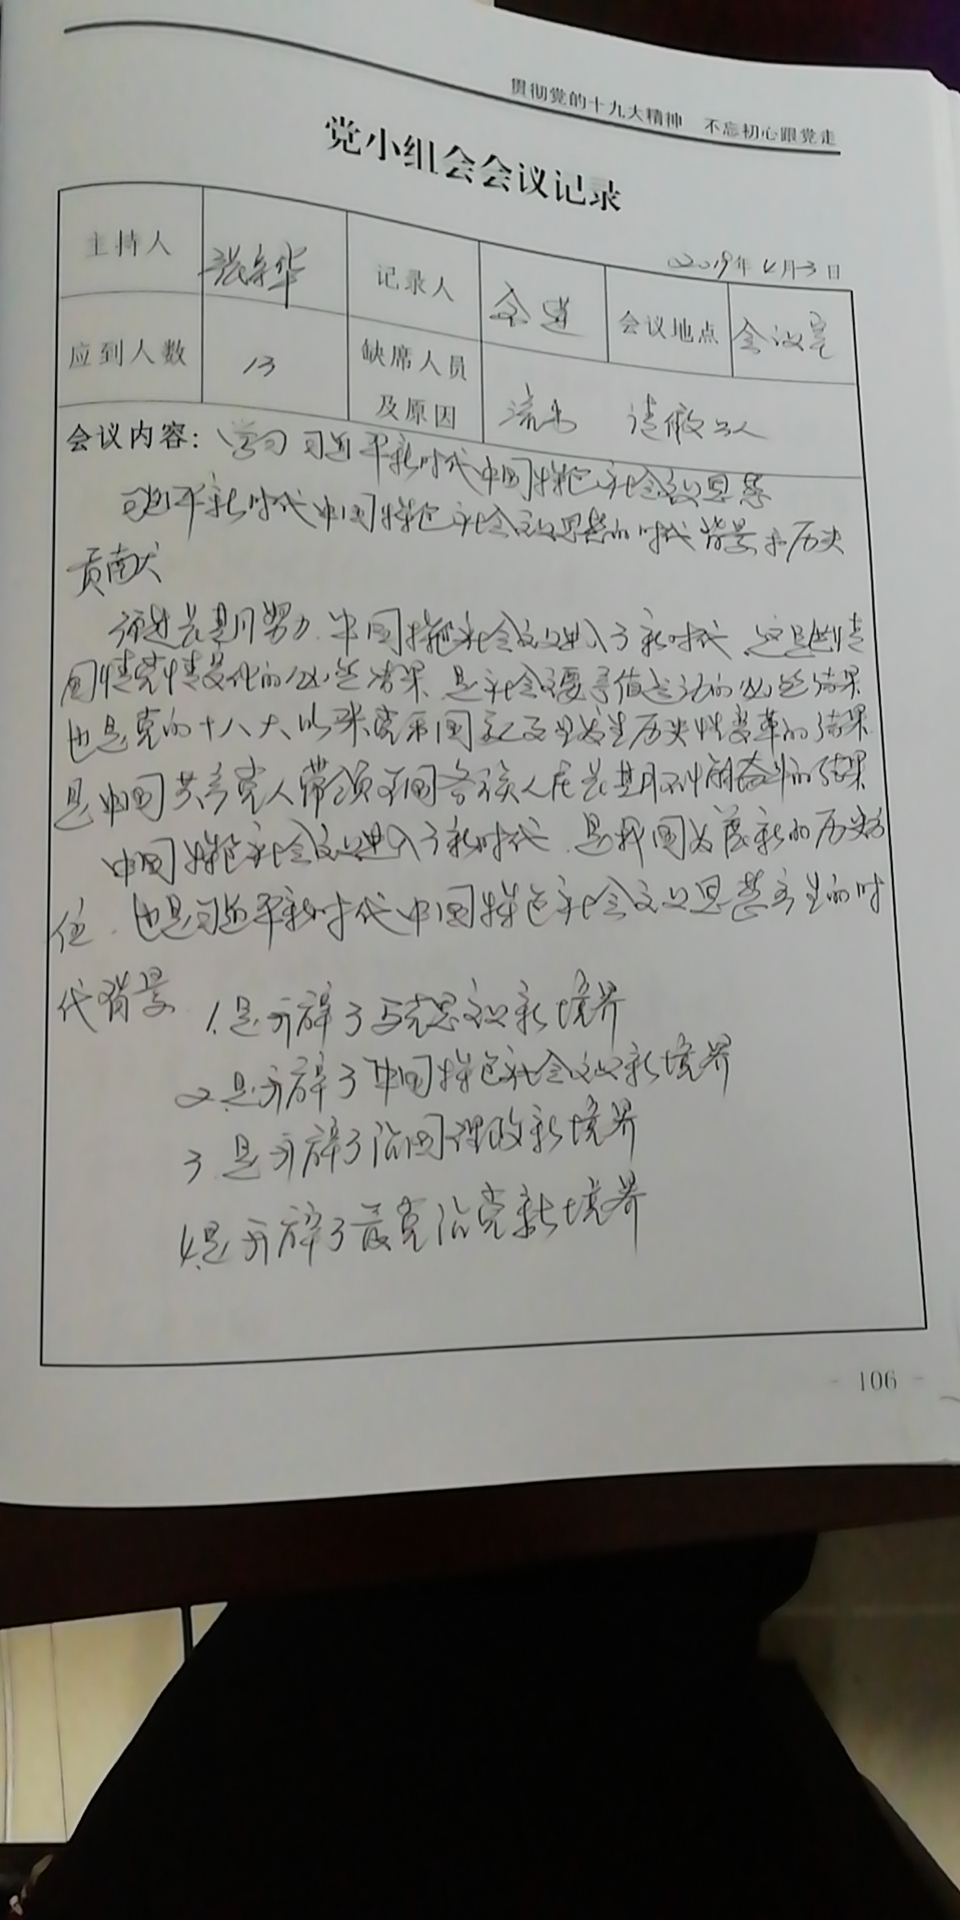 贯彻党的十九大精神 不忘初心跟党走
党小组会会议记录
2019年4月3日
主持人 张宗华 记录人 会议地点 会议室
应到人数 13 缺席人员及原因 请假2人
会议内容: 学习习近平新时代中国特色社会主义思想
习近平新时代中国特色社会主义思想的时代背景和历史
贡献
经过长期努力.中国特色社会主义进入了新时代.这是世情
国情党情变化的必然结果.是社会主要矛盾运动的必然结果
也是党的十八大以来党和国家事业发生历史性变革的结果
是中国共产党人带领全国各族人民长期不懈奋斗的结果
中国特色社会主义进入了新时代.是我国发展新的历史方
位.也是习近平新时代中国特色社会主义思想产生的时
代背景
1.是开辟了马克思主义新境界
2.是开辟了中国特色社会主义新境界
3.是开辟了治国理政新境界
4.是开辟了管党治党新境界
106